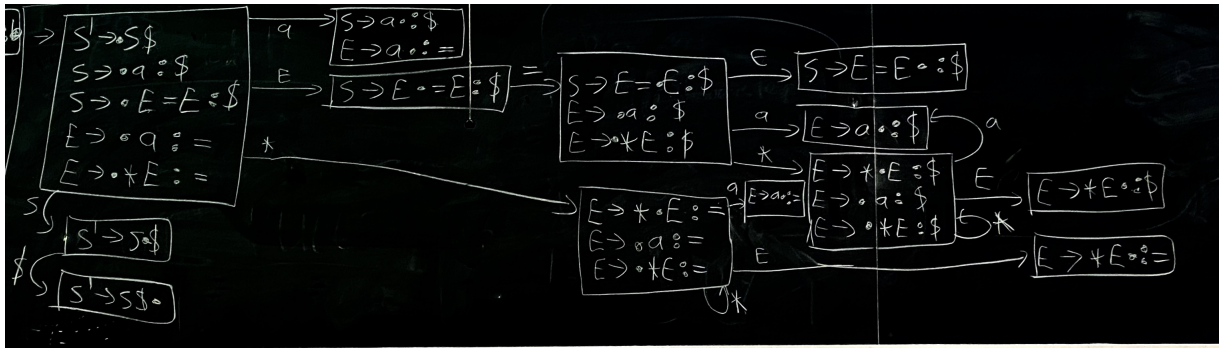 S' → •S$
S → •a : $
S → •E=E : $
E → •a : =
E → •*E : =
a
S → a• : $
E → a• : =
E
S → E•=E : $
=
S → E=•E : $
E → •a : $
E → •*E : $
E
S → E=E• : $
a
E → a• : $
a
*
E → *•E : $
E → •a : $
E → •*E : $
E
E → *E• : $
*
*
E → *•E : =
E → •a : =
E → •*E : =
a
E → a• : =
E
E → *E• : =
*
S
S' → S•$
$
S' → S$•